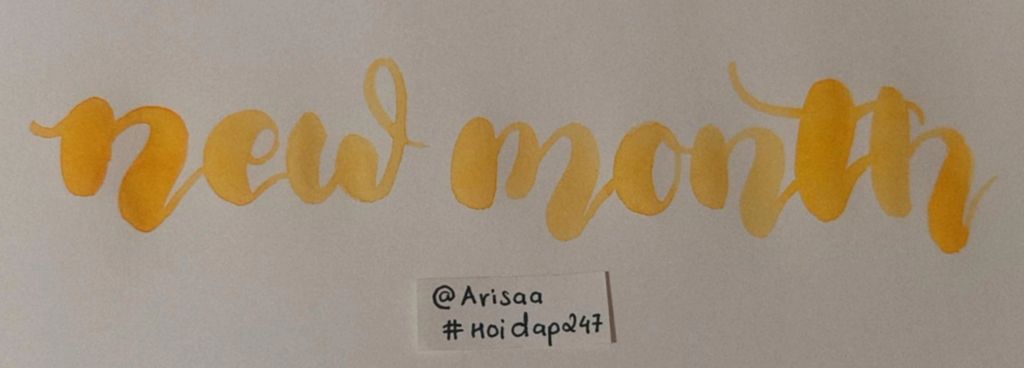 new month
@Arisaa
#Hoidap247